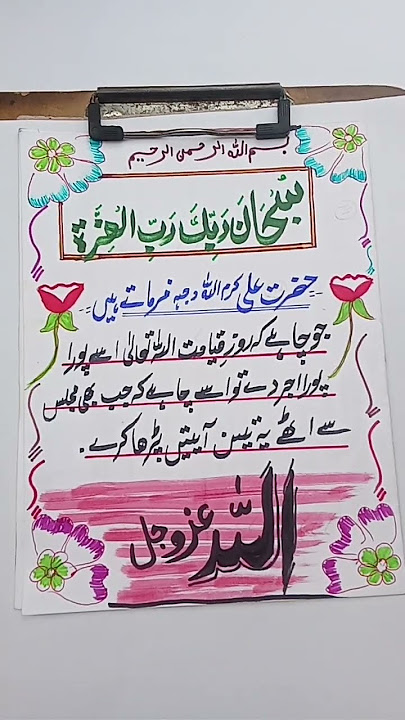 بسم اللہ الرحمن الرحیم
سُبْحَانَ رَبِّكَ رَبِّ الْعِزَّةِ
حضرت علی کرم اللہ وجہہ فرماتے ہیں
جو چاہے کہ روزِ قیامت اللہ تعالیٰ اسے پورا
پورا اجر دے تو اسے چاہے کہ جب بھی مجلس
سے اٹھے یہ تین آیتیں پڑھا کرے۔
اللہ عزوجل